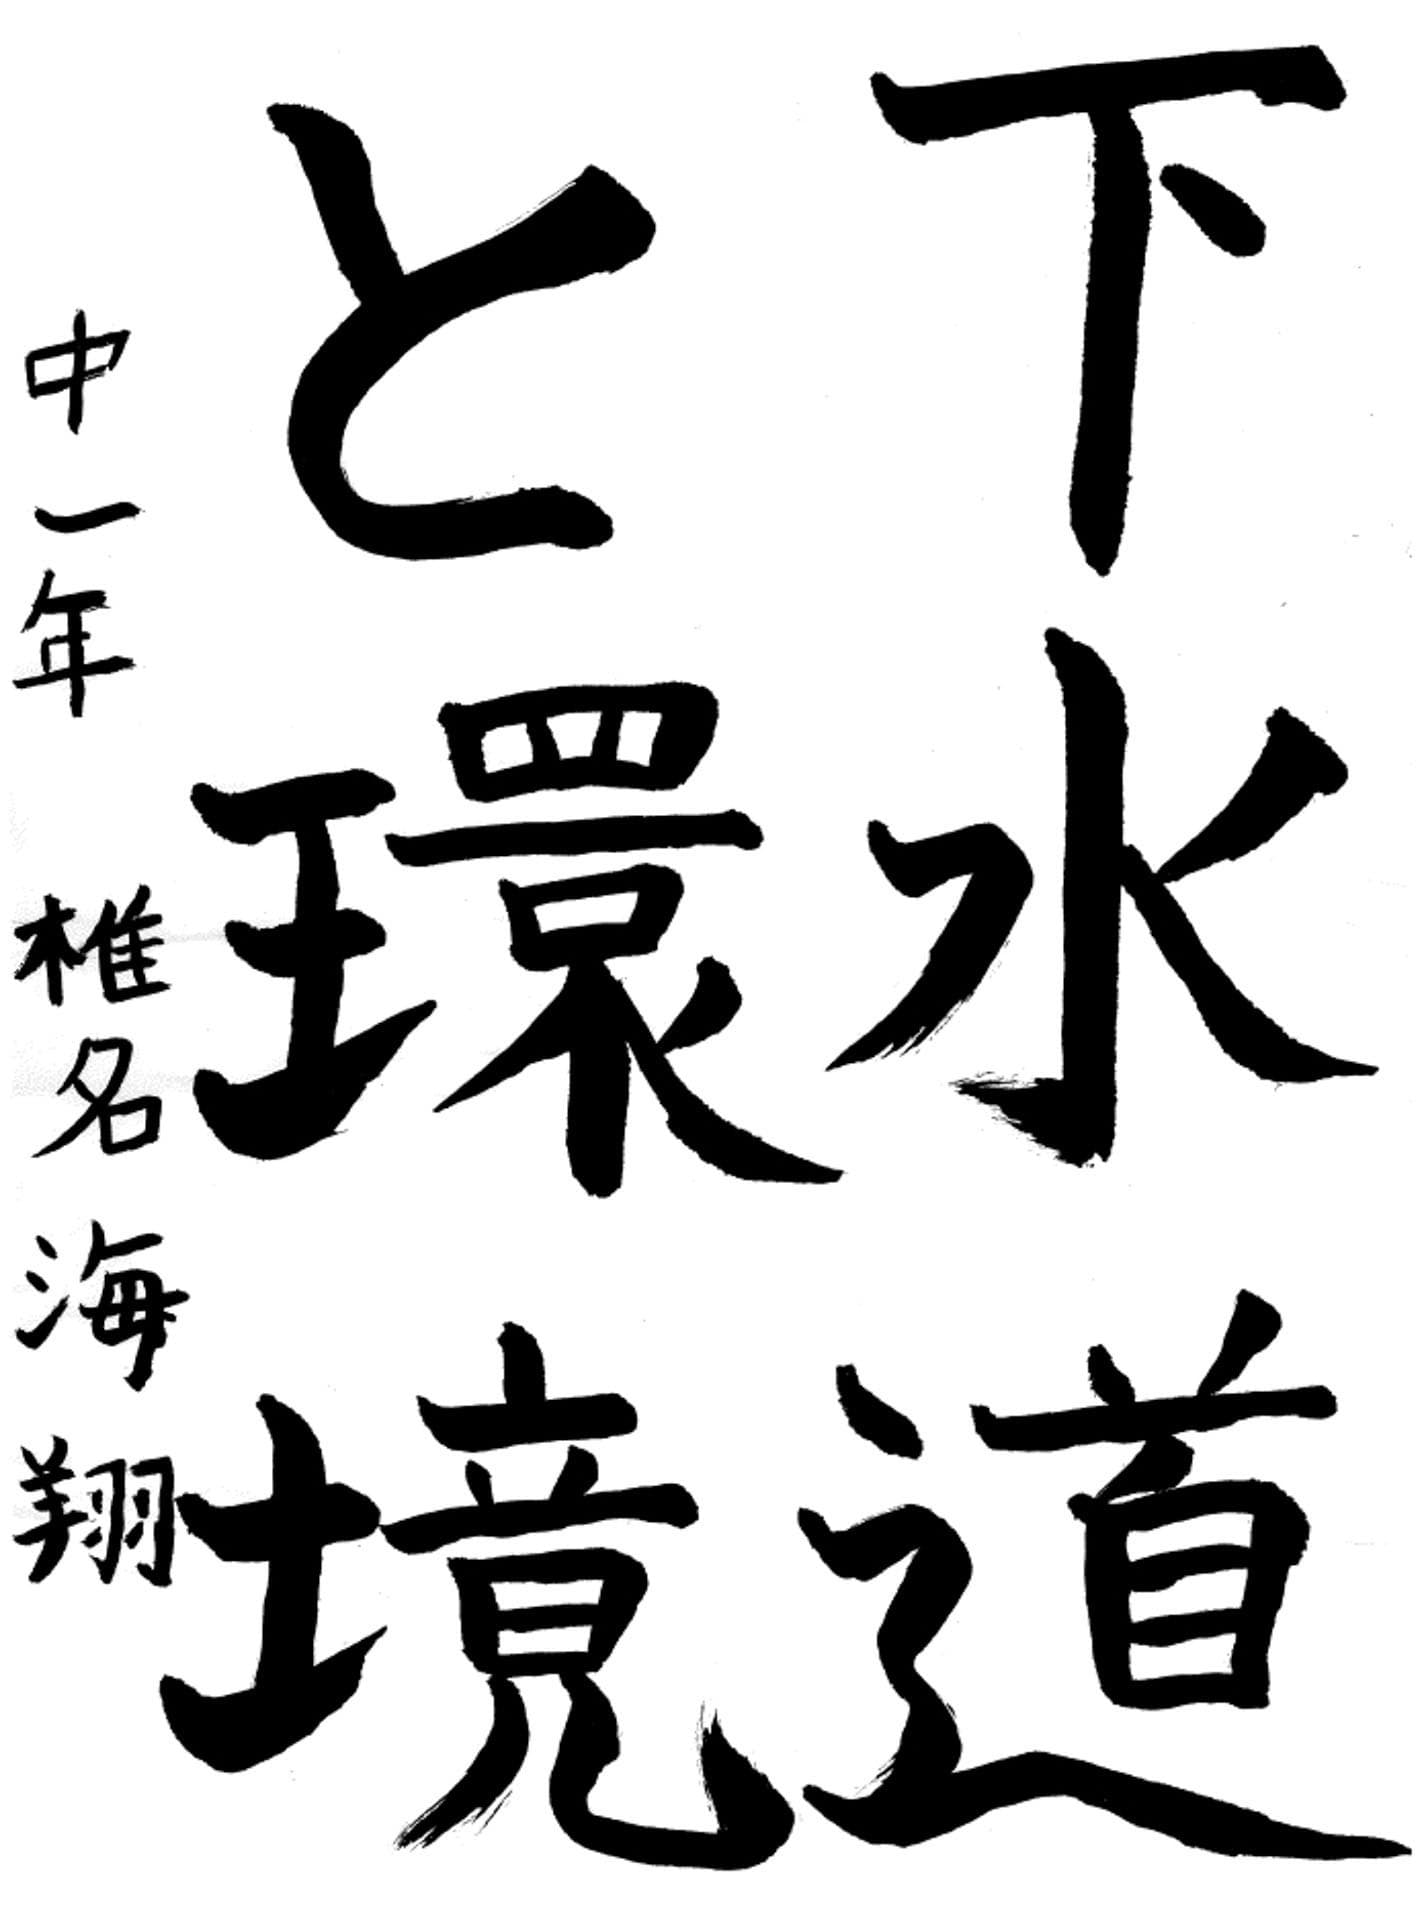 下水道
と環境
中一年 椎名海翔